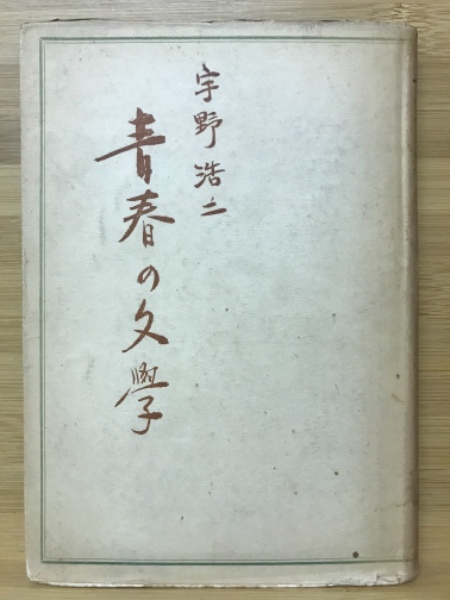 宇野浩二
青春の文學